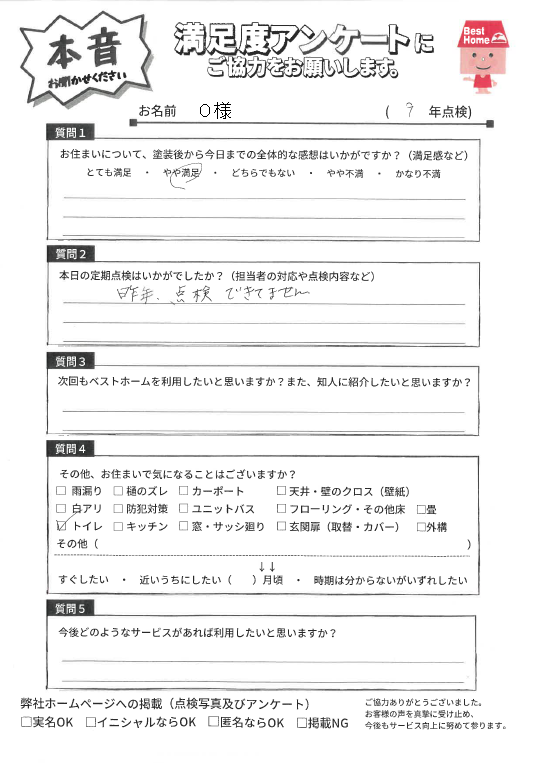 本音
お聞かせください
満足度アンケートに
ご協力をお願いします。
Best
Home
お名前 O様 ( 9 年点検)
質問1
お住まいについて、塗装後から今日までの全体的な感想はいかがですか?(満足感など)
とても満足 ・ やや満足 ・ どちらでもない ・ やや不満 ・ かなり不満
質問2
本日の定期点検はいかがでしたか?(担当者の対応や点検内容など)
昨年、点検できてません
質問3
次回もベストホームを利用したいと思いますか?また、知人に紹介したいと思いますか?
質問4
その他、お住まいで気になることはございますか?
□ 雨漏り □ 樋のズレ □ カーポート □ 天井・壁のクロス(壁紙)
□ 白アリ □ 防犯対策 □ ユニットバス □ フローリング・その他床 □畳
☑ トイレ □ キッチン □ 窓・サッシ廻り □ 玄関扉(取替・カバー) □外構
その他( )
↓↓
すぐしたい ・ 近いうちにしたい( )月頃 ・ 時期は分からないがいずれしたい
質問5
今後どのようなサービスがあれば利用したいと思いますか?
弊社ホームページへの掲載(点検写真及びアンケート)
□実名OK □イニシャルならOK □匿名ならOK □掲載NG
ご協力ありがとうございました。
お客様の声を真摯に受け止め、
今後もサービス向上に努めて参ります。